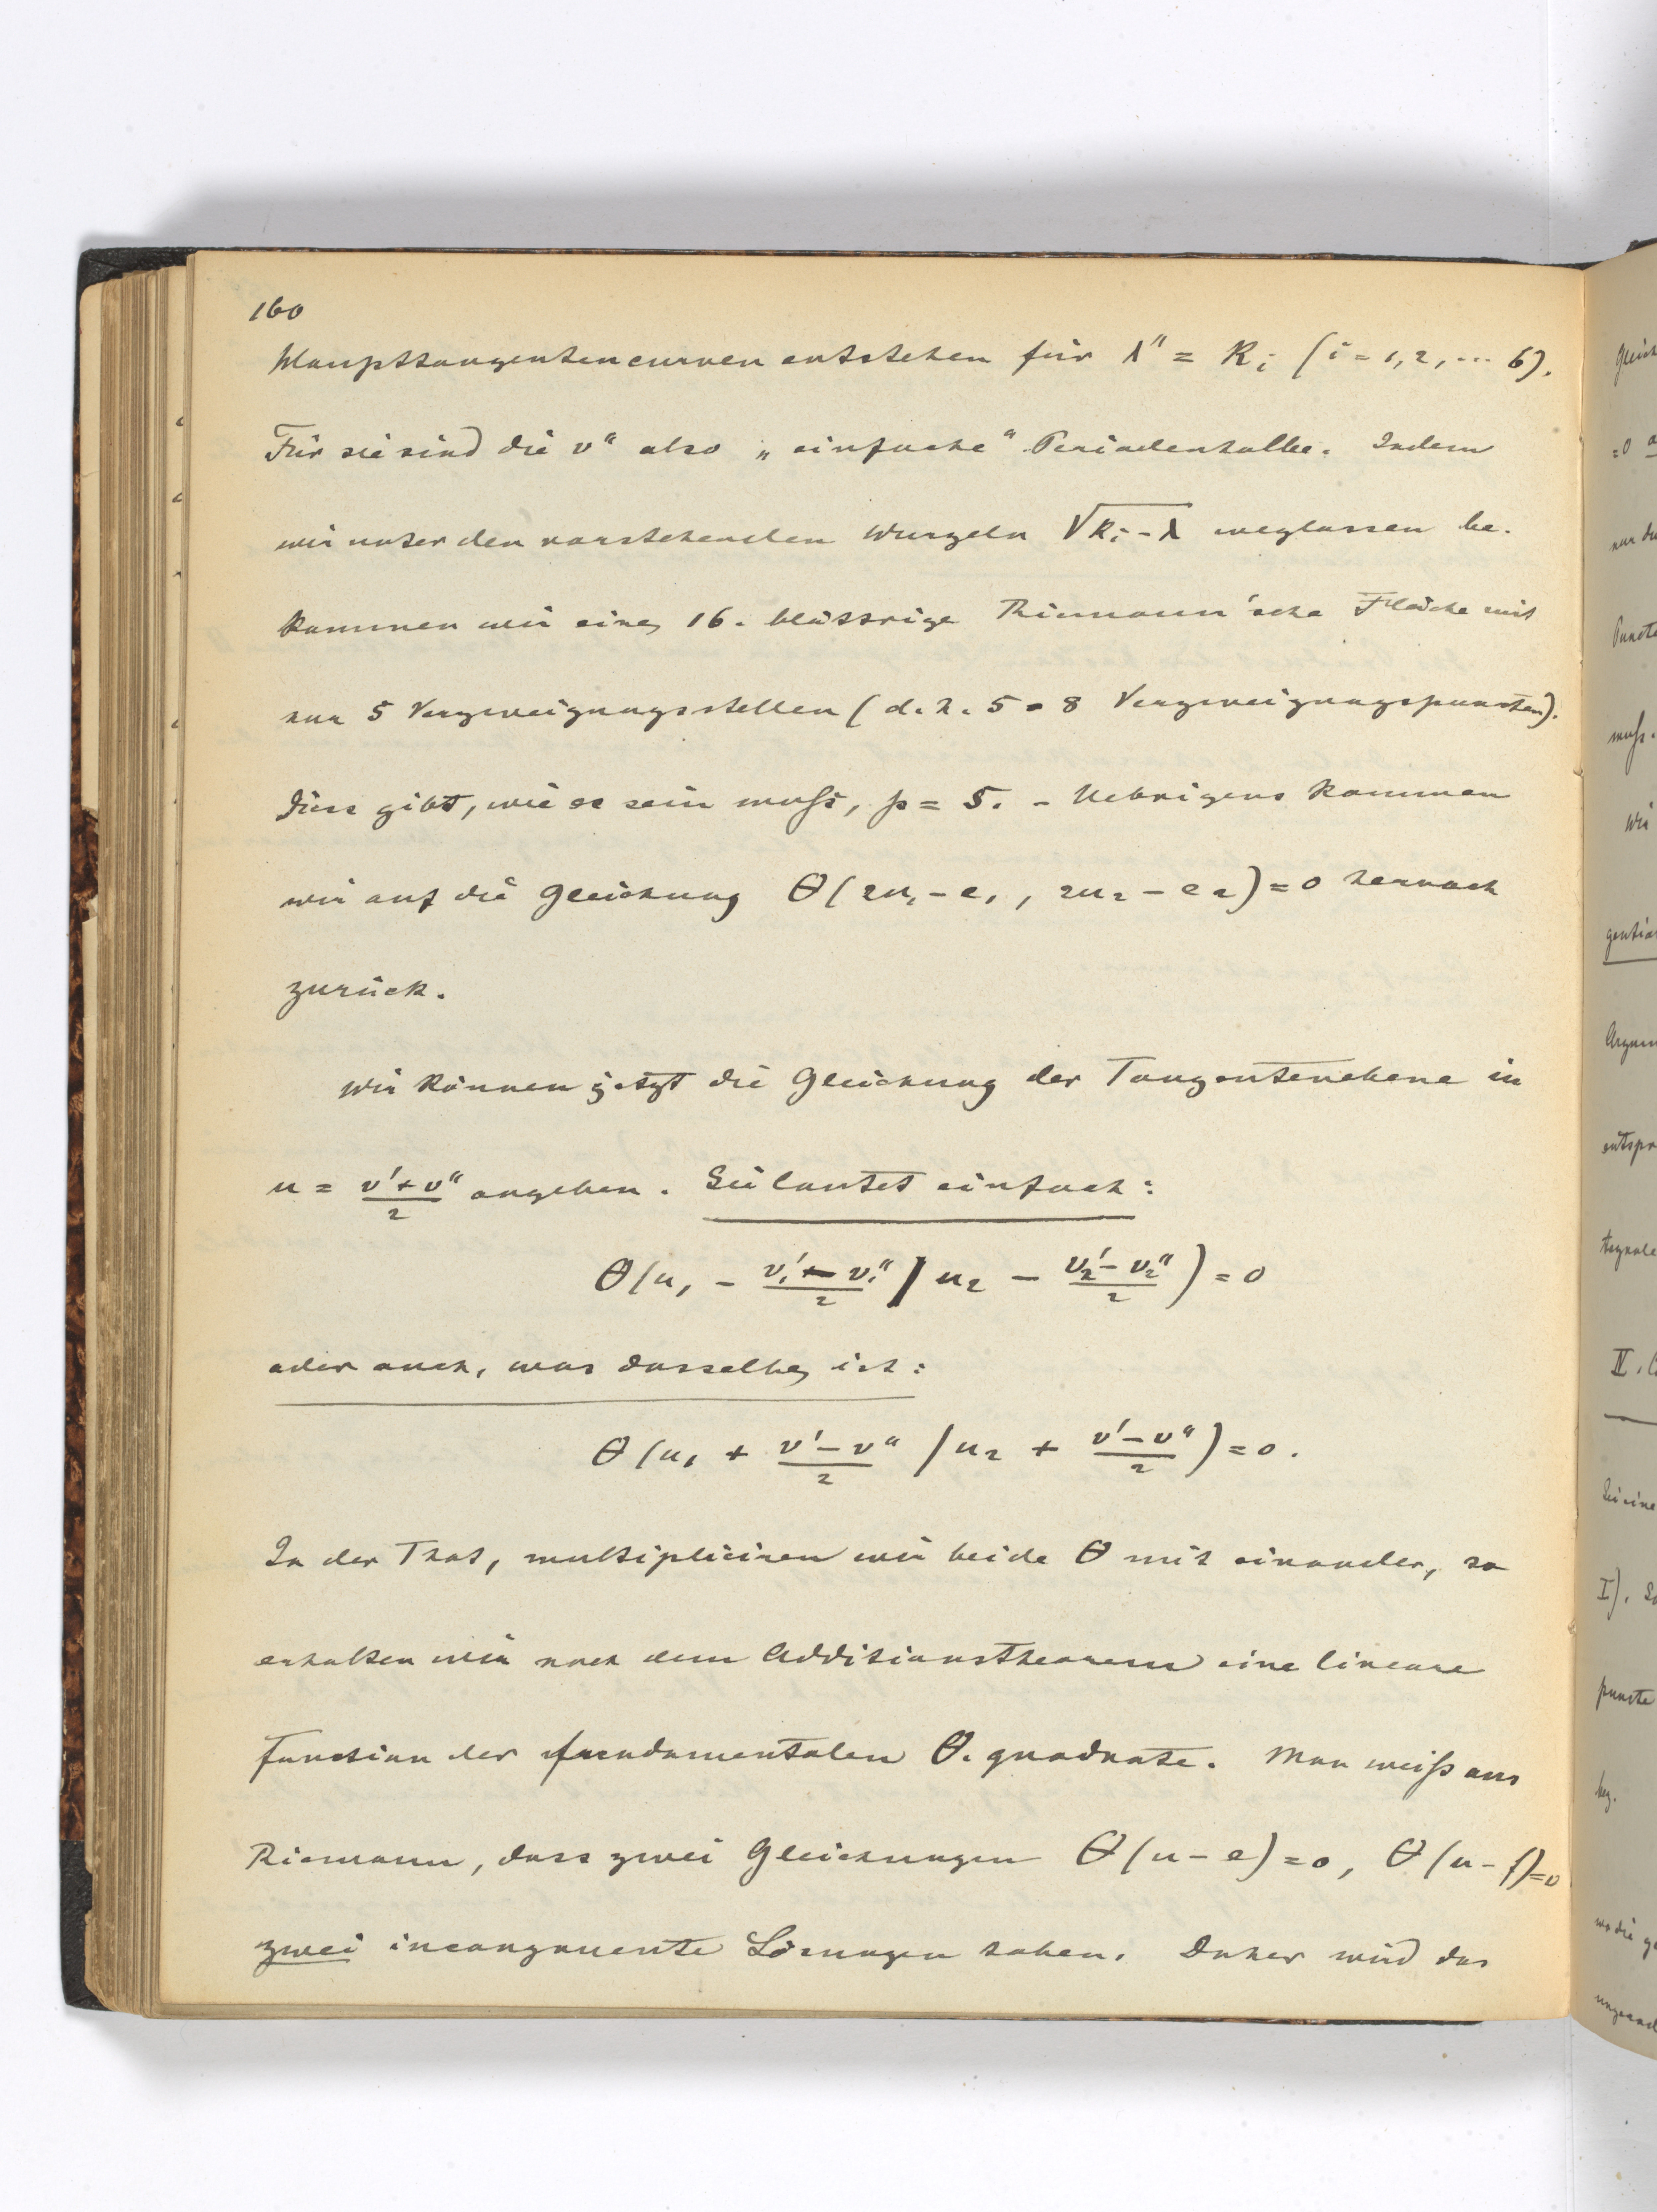 160
Haupttangentencurven entstehen für λ" = Kᵢ (i = 1, 2, ... 6).
Für sie sind die v" also „einfache" Periodenhalbe. Indem
wir unter den vorstehenden Wurzeln √(Kᵢ - λ) weglassen be-
kommen wir eine 16-blättrige Riemann'sche Fläche mit
nur 5 Verzweigungsstellen (d.h. 5 · 8 Verzweigungspuncten).
Dies gibt, wie es sein muß, p = 5. - Uebrigens kommen
wir auf die Gleichung θ(2u₁ - e₁, 2u₂ - e₂) = 0 hernach
zurück.
Wir können jetzt die Gleichung der Tangentenebene in
u = (v' + v")/2 angeben. Sie lautet einfach:
θ(u₁ - (v₁' - v₁")/2 / u₂ - (v₂' - v₂")/2) = 0
oder auch, was dasselbe ist:
θ(u₁ + (v' - v")/2 / u₂ + (v' - v")/2) = 0.
In der That, multipliciren wir beide θ mit einander, so
erhalten wir nach dem Additionstheorem eine lineare
Function der fundamentalen θ-quadrate. Man weiß aus
Riemann, dass zwei Gleichungen θ(u - e) = 0, θ(u - f) = 0
zwei incongruente Lösungen haben. Daher wird das
Gleich
= 0
nur
Puncte
muß.
Wir
entspr
IV.
I).
puncte